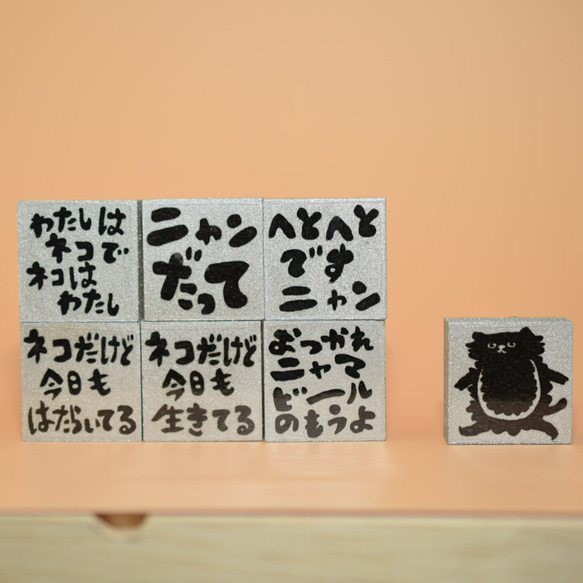 わたしは
ネコで
ネコは
わたし
ニャン
だって
へとへと
です
ニャン
ネコだけど
今日も
はたらいてる
ネコだけど
今日も
生きてる
おつかれ
ニャマ
ビール
のもうよ